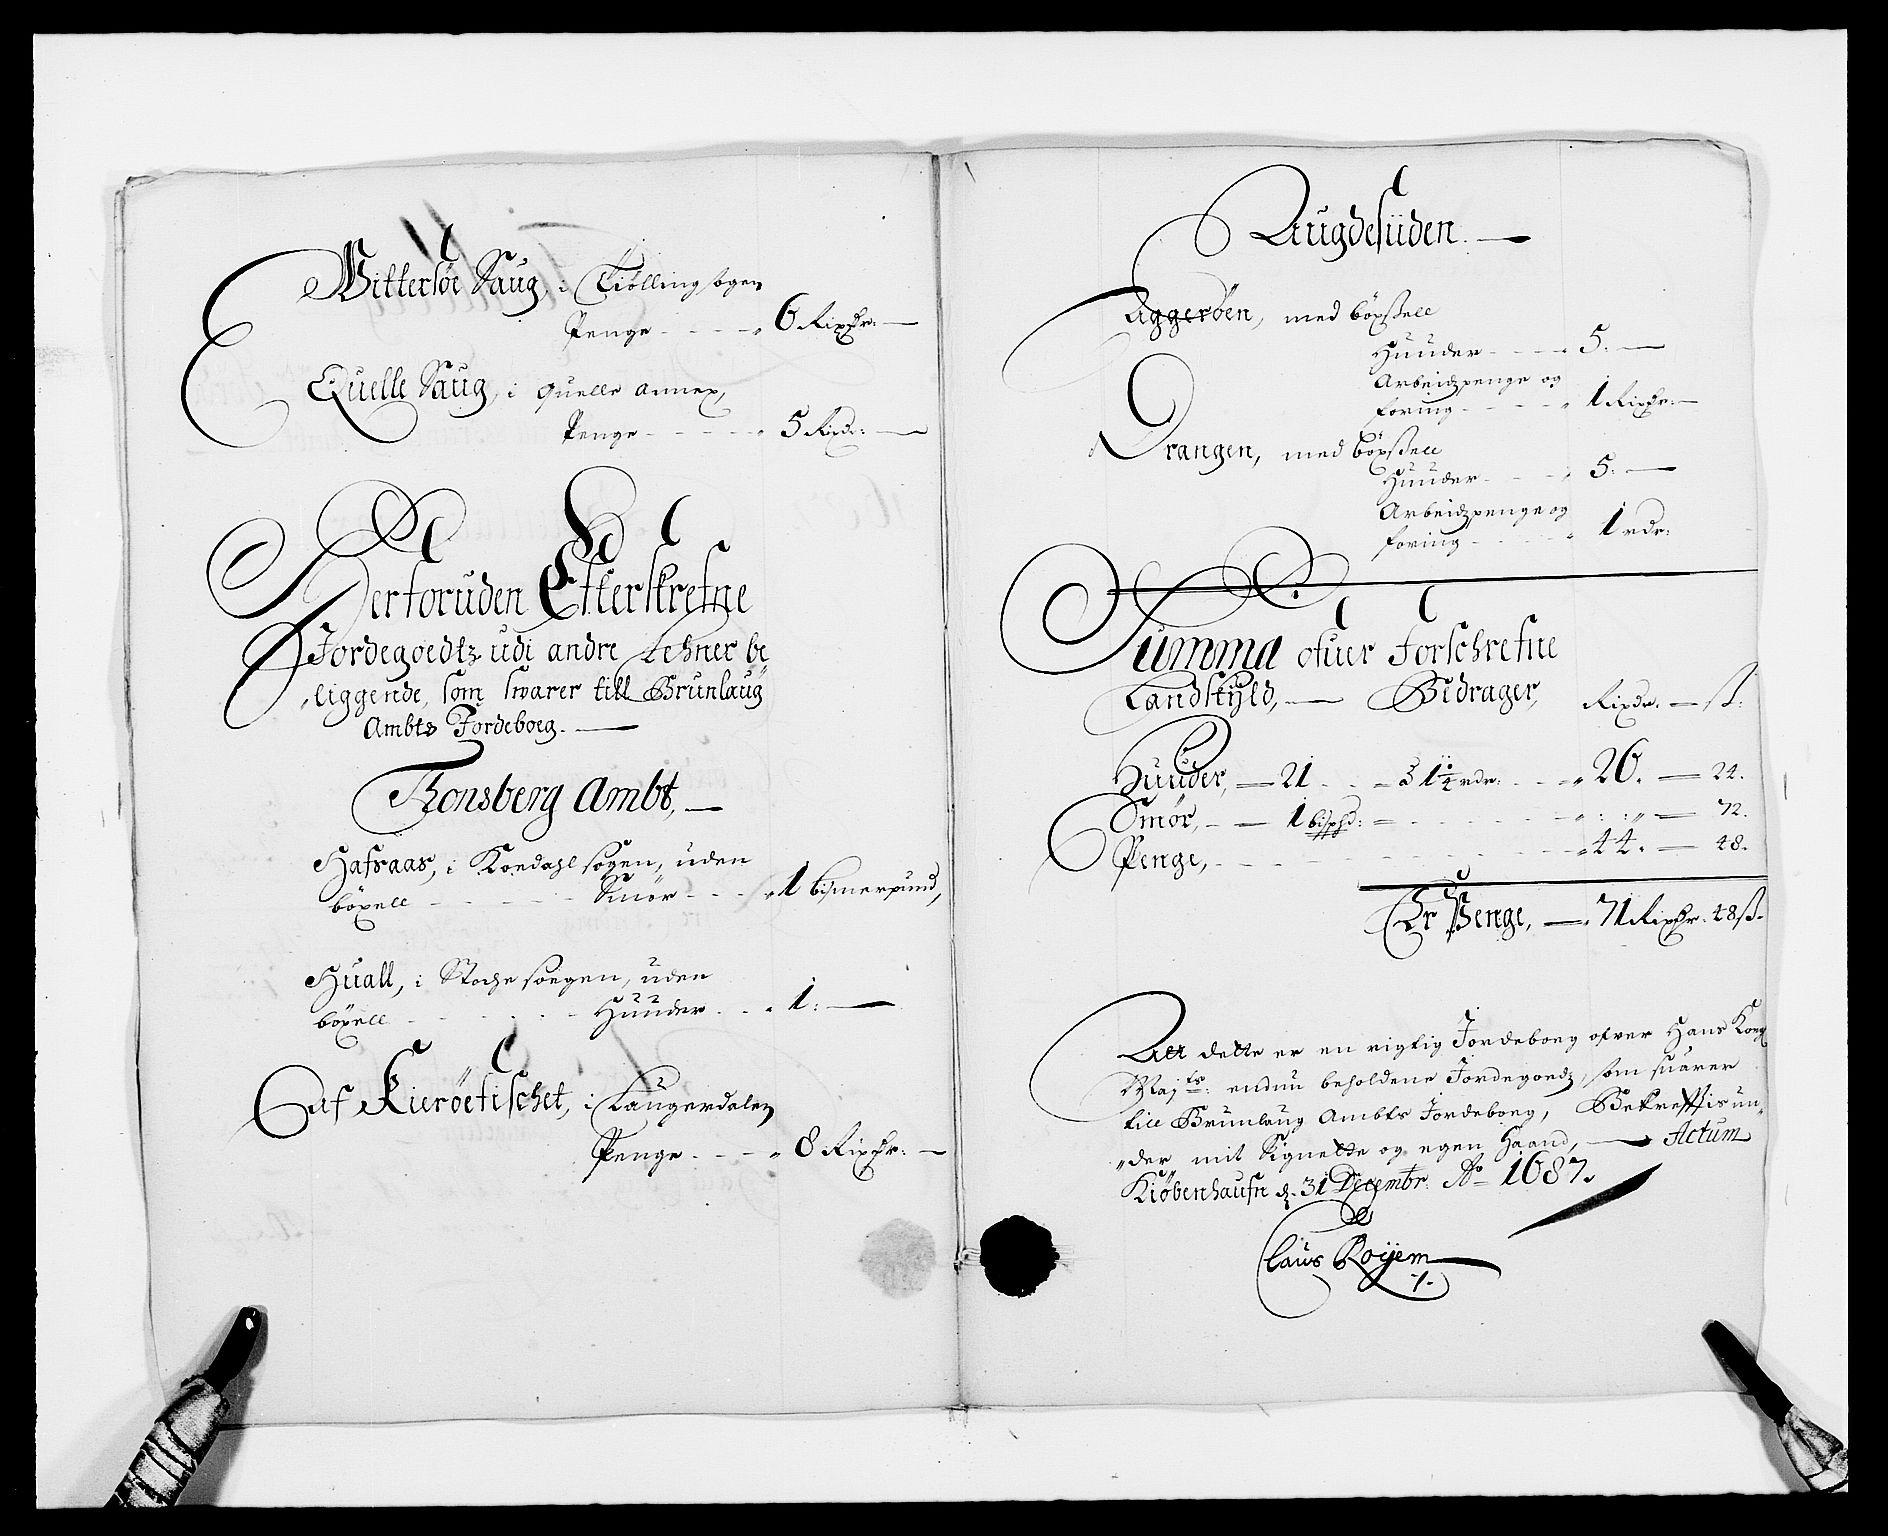 Wittersøe Saug, i Kiølling sogen
Penge - - - - „ 6 Rixdr: —
Quelle Saug, i Quelle annex,
Penge - - - - „ 5 Rixdr: —
Herforuden Efterskrefne
Jordegoedtz udi andre Lehner be„
„liggende, som swarer till Brunlaug
Ambts Jordeboeg. —
Tonsberg Ambt, —
Hafsaas, i Koedahl sogen, uden
böxell - - - - - Smör - - - „ 1 bismerpund,
Huall, i Stoche soegen, uden
böxell - - - - - Hüüder - - „ 1: —
Af Kieröefischet, i Laugerdalen
Penge - - - - „ 8 Rixdr: —
Augdesiiden. —
Aggerøen, med böxsell
Huuder - - - - „ 5: —
Arbeidzpenge og
foring - - - - „ 1 Rixdr: —
Drangen, med böxsell
Huuder - - - - „ 5: —
Arbeidzpenge og
foring - - - - „ 1 rdr:
Summa ofuer Forschrefne
Landskyld, — Bedrager, Rixdr. — ß:
Huuder, — 21 - - - à 1 1/4 rdr: - - - „ 26. — 24.
Smør, - — 1 bisphd: = - - - - - „ : : „ — 72.
Penge, - - - - - - - - - „ 44. — 48.
Er Penge, — „ 71 Rixdr. 48 ß.
Att dette er en rigtig Jordeboeg ofver Hans Kong
Maj ts: endnu beholdene Jordegoedz, som suarer
till Brunlaug Ambts Jordeboeg, Bekreftis un„
„der mit Signette og egen Haand, — Actum
Kiöbenhaufn d. 31 Decembr. Ao 1687.
Claus Röyem